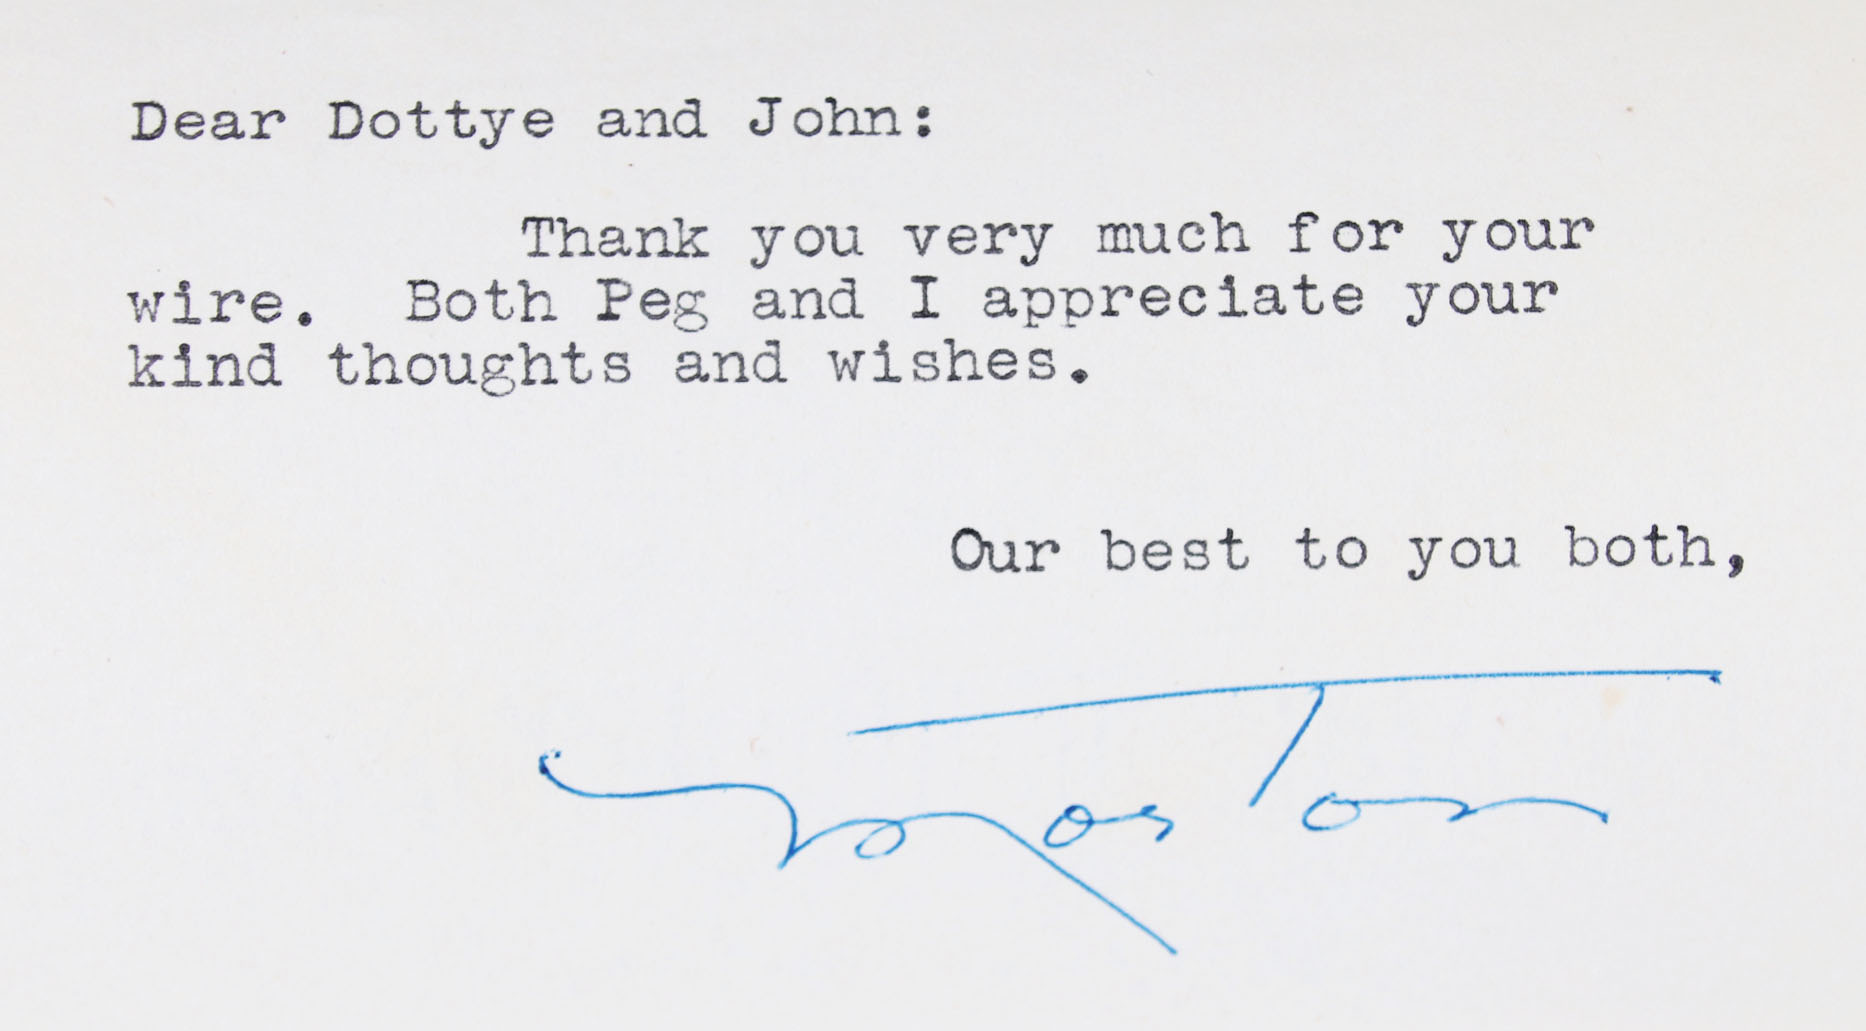 Dear Dottye and John:
Thank you very much for your
wire. Both Peg and I appreciate your
kind thoughts and wishes.
Our best to you both,